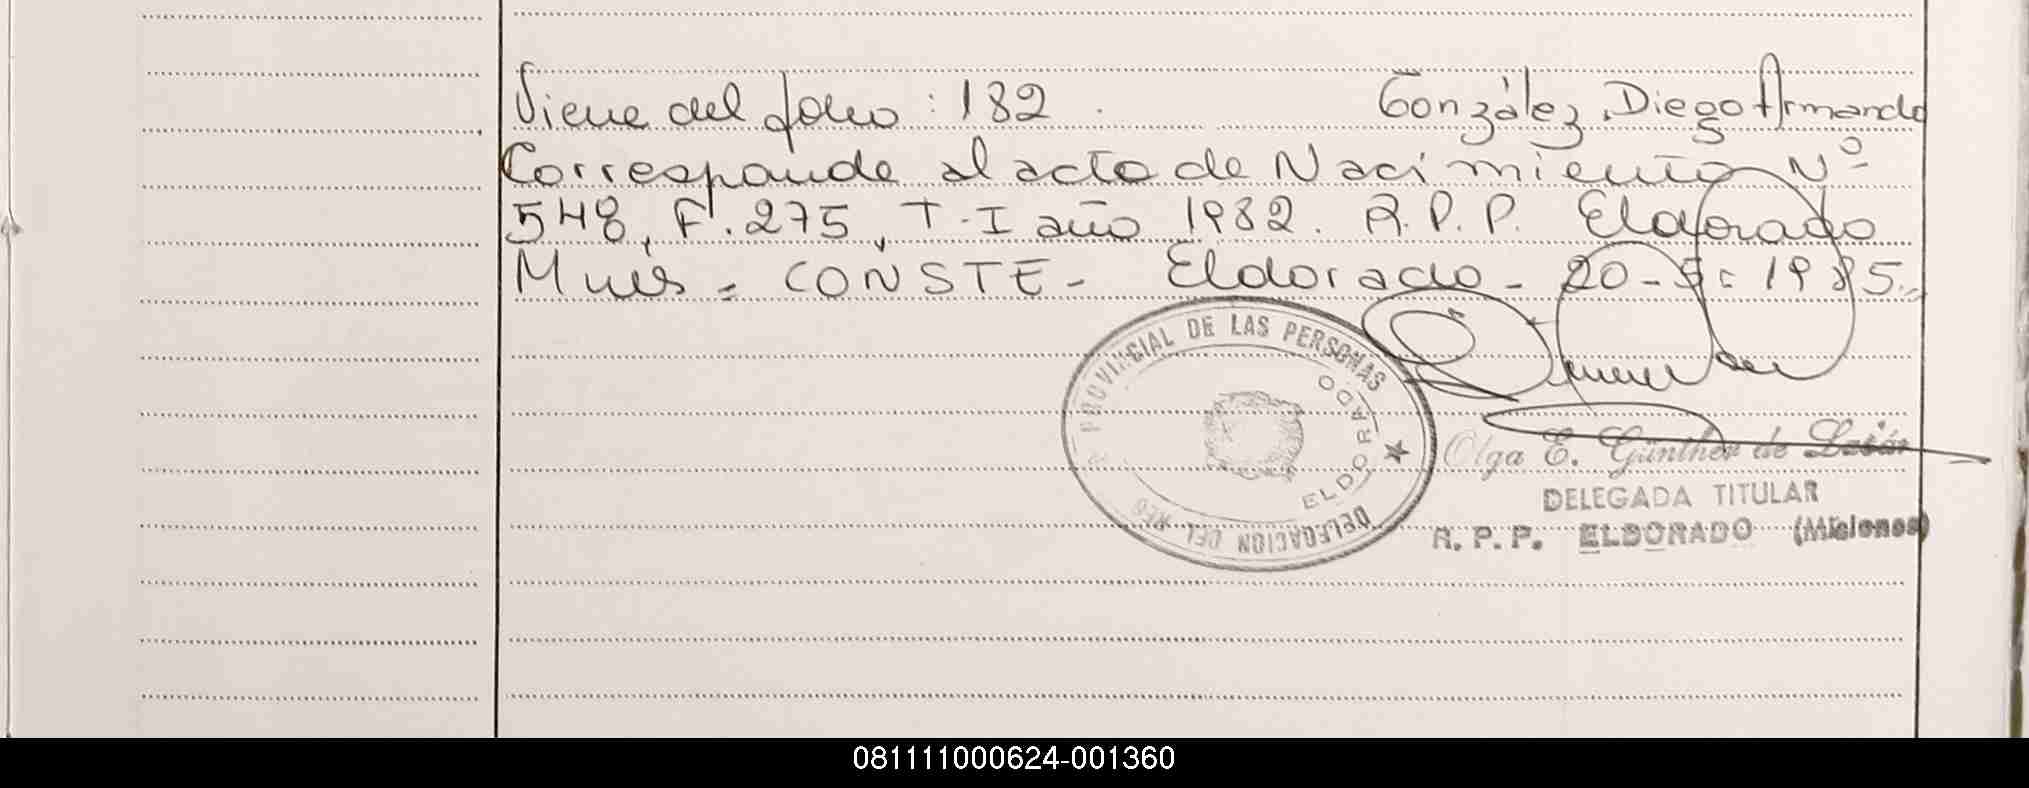 Viene del folio : 182 . González, Diego Armando
Corresponde al acta de Nacimiento Nº
548, F. 275, T-I año 1982. R.P.P. Eldorado
Mnes. = CONSTE - Eldorado - 20-5-1985.
PROVINCIAL DE LAS PERSONAS
ELDORADO
DELEGACION DEL REG
Olga E. Günther de
DELEGADA TITULAR
R. P. P. ELDORADO (Misiones)
081111000624-001360